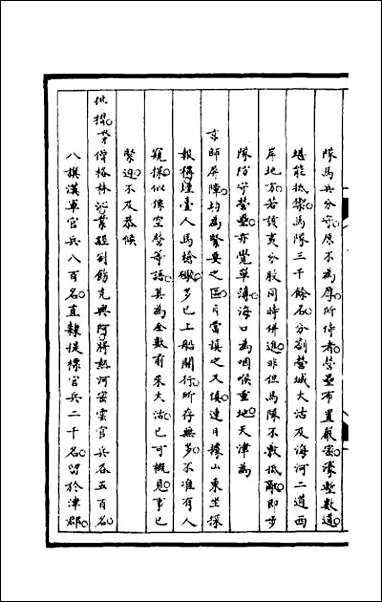 隊馬兵分守原不為厚所恃者營壘布置嚴密濠塹數道
堪能抵禦馬隊三千餘名分劄營城大沽及海河二道西
岸地方若該夷分股同時併進非但馬隊不敷抵敵即步
隊防守營壘亦覺單薄海口為咽喉重地天津為
京師屏障均為緊要之區片當慎之又慎連日據山東坐探
報稱煙臺人馬槍礮多已上船開行所存無多不准有人
窺探似係空營等語其為全數前來大沽已可概見事已
緊迫不及恭候
批摺僧格林沁業經到飭克興阿將熱河密雲官兵各五百名
八旗漢軍官兵八百名直隸提標官兵二千名留於津郡